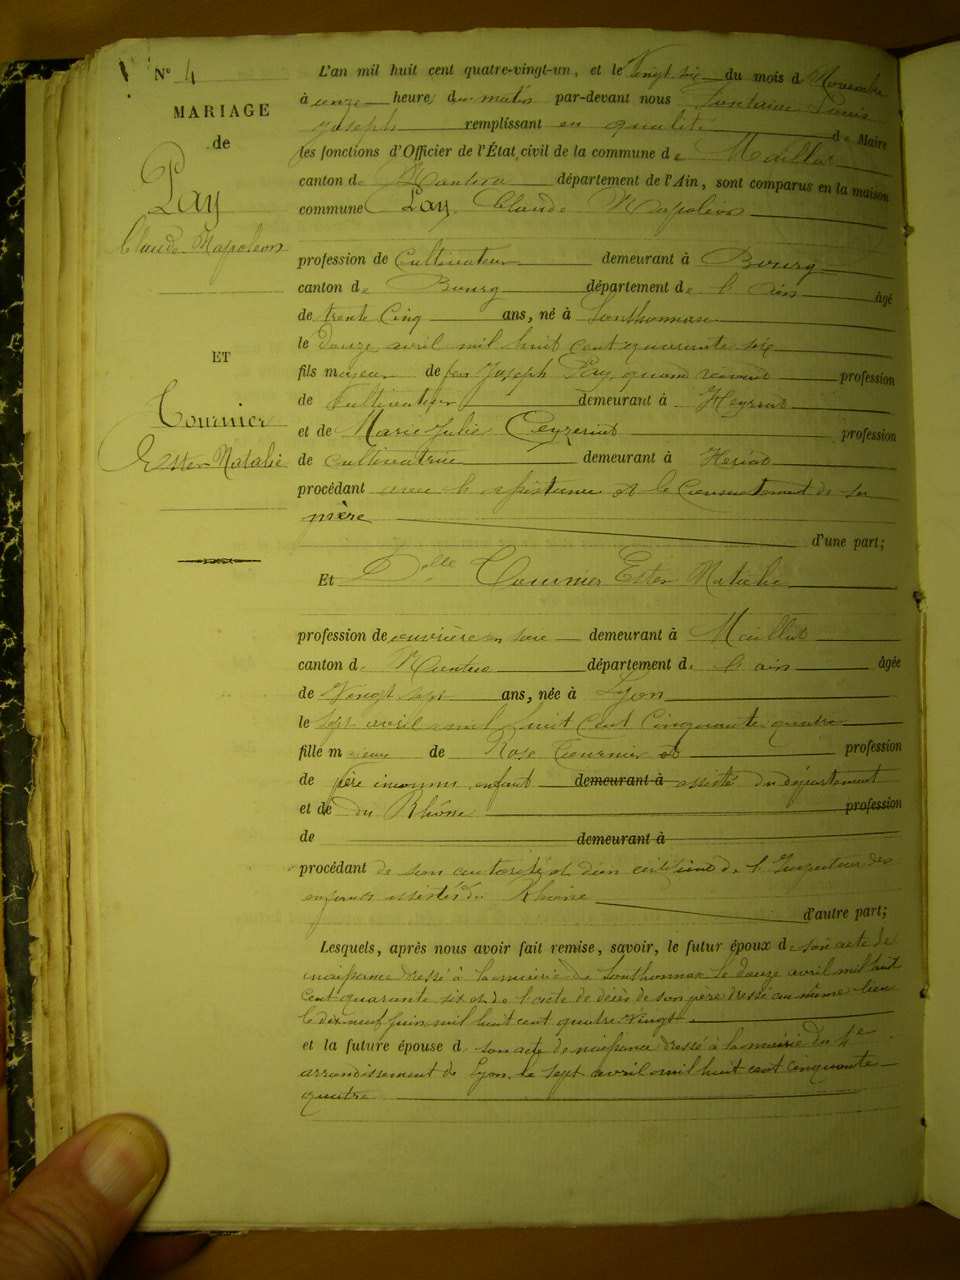 N° 4
MARIAGE
de
Pay
Claude Napoléon
ET
Tournier
Ester Natalie
L'an mil huit cent quatre-vingt-un, et le Vingt six du mois de Novembre
à onze heures du matin par-devant nous Louis
Joseph remplissant en qualité de Maire
les fonctions d'Officier de l'État civil de la commune de Maillat
canton de Nantua département de l'Ain, sont comparus en la maison
commune Pay Claude Napoléon
profession de Cultivateur demeurant à Bourg
canton de Bourg département de l'ain âgé
de trente Cinq ans, né à Sonthonnax
le douze avril mil huit cent quarante six
fils majeur de feu Joseph Pay, quand vivait profession
de Cultivateur demeurant à Heyriat
et de Marie Julie Ceyzeriat profession
de cultivatrice demeurant à Heriat
procédant avec l'assistance et le Consentement de sa
mère
d'une part;
Et Delle Tournier Ester Natalie
profession de ouvrière en soie demeurant à Maillat
canton de Nantua département de l'ain âgée
de Vingt sept ans, née à Lyon
le sept avril mil huit Cent Cinquante quatre
fille majeure de Rose Tournier et profession
de père inconnu, enfant demeurant à assisté du département
et de du Rhône profession
de demeurant à
procédant de son autorité et d'un certificat de l'Inspecteur des
enfants assistés du Rhône
d'autre part;
Lesquels, après nous avoir fait remise, savoir, le futur époux de son acte de
naissance dressé à la mairie de Sonthonnax le douze avril mil huit
cent quarante six et de l'acte de décès de son père dressé au même lieu
le dix neuf juin mil huit cent quatre vingt
et la future épouse de son acte de naissance dressé à la mairie du 4e
arrondissement de Lyon le sept avril mil huit cent cinquante
quatre